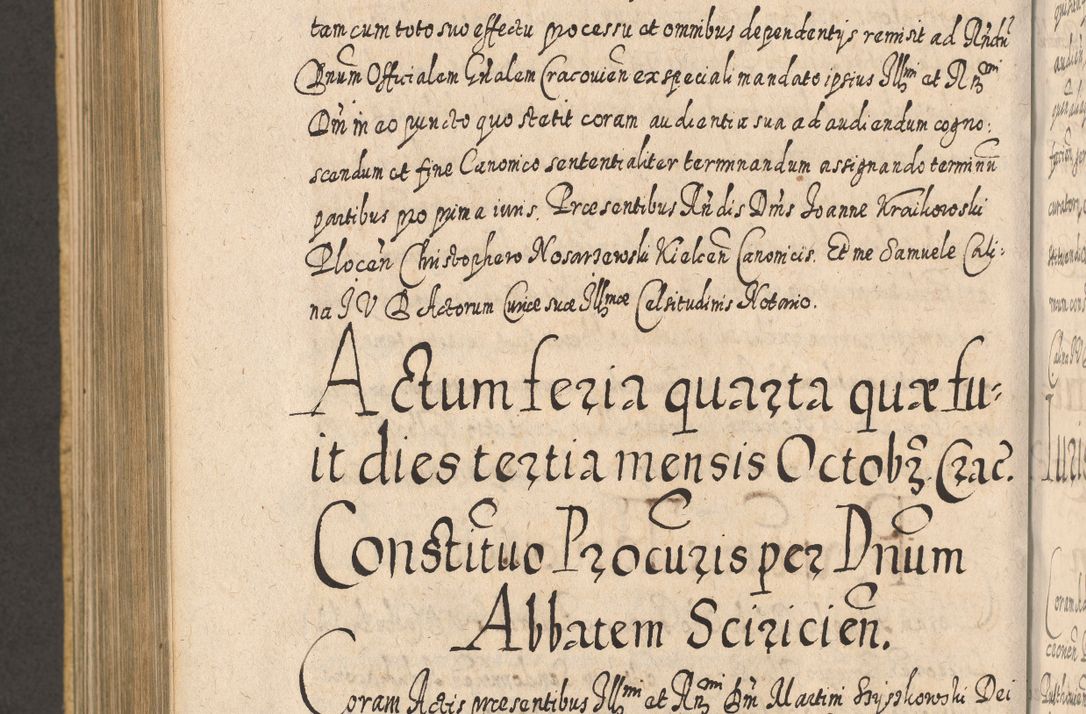 tam cum toto suo effectu processu et omnibus dependentijs remisit ad Rńdũ
Dnum Officialem Gńalem Cracovień ex speciali mandato ipsius Illmi et Rmi
Dńi in eo puncto quo stetit coram audientia sua ad audiendum cogno:
scendum et fine Canonico sententialiter terminandum assignando terminũ
partibus pro prima iuris. Præsentibus Rńdis Dńis Joanne Kraikowski
Ploceń Christophero Nosarzewski Kielceń Canonicis. Et me Samuele Cali:
na J V D Actorum Curiæ suæ Illmæ Celsitudinis Notario.
Actum feria quarta quæ fu:
it dies tertia mensis Octobr Crac.
Constituo Procuris per Dnum
Abbatem Sciricień.
Coram Actis præsentibus Illmi et Rmi Dńi Martini Szyszkowski Dei